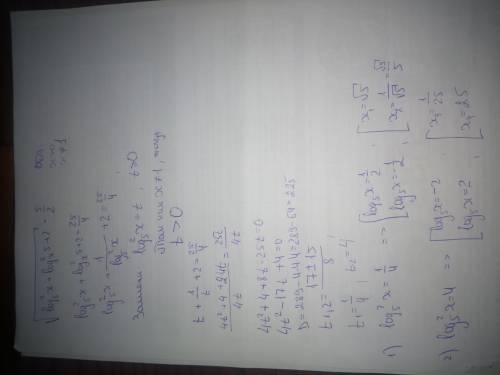 √(log₅²x + logₓ²5 + 2) = 5/2
ОДЗ:
x>0
x≠1
log₅²x + logₓ²5 + 2 = 25/4
log₅²x + 1/log₅²x + 2 = 25/4,
Замена log₅²x = t, t>0
так как x≠1, то
t>0
t + 1/t + 2 = 25/4
4t²+4+8t / 4t = 25t / 4t
4t²+4+8t-25t=0
4t²-17t+4=0
D=289-4·4·4=289-64=225
t₁,₂ = 17±15 / 8
t₁=1/4, t₂=4
1) log₅²x = 1/4 => [log₅x = 1/2, log₅x = -1/2, [x₁=√5, x₂=1/√5=√5/5
2) log₅²x = 4 => [log₅x = -2, log₅x = 2, [x₃=1/25, x₄=25